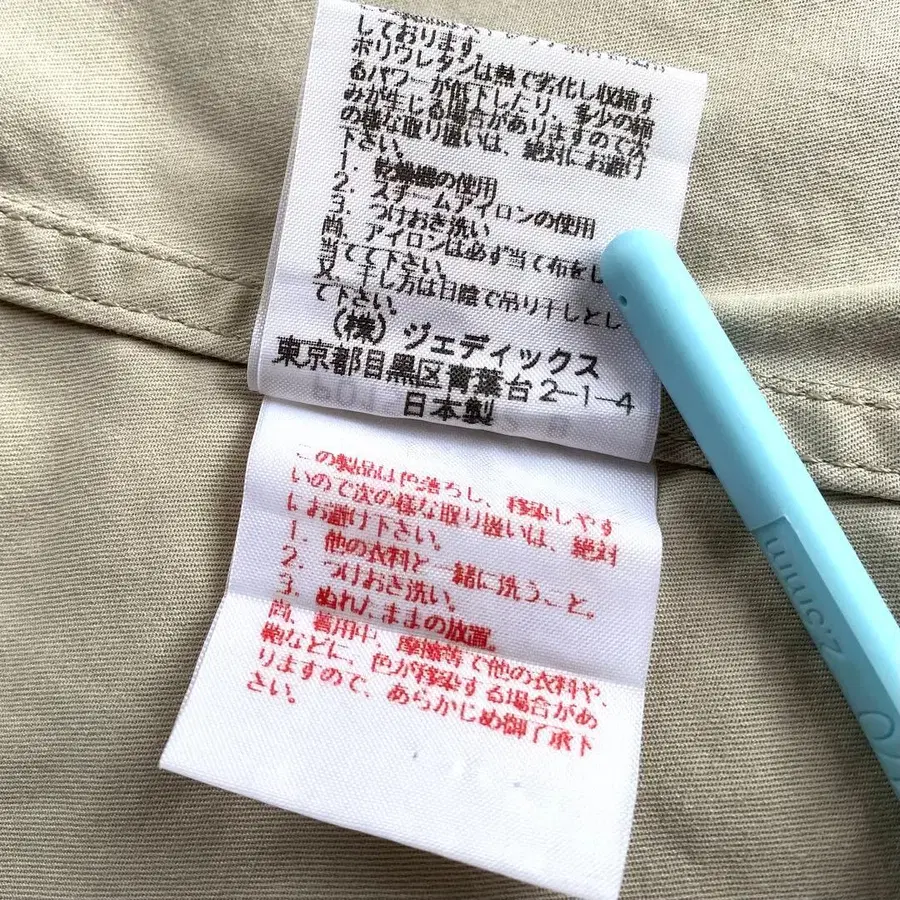 しております。
ポリウレタンは熱で劣化し収縮す
るパワーが低下したり、多少の縮
みが生じる場合がありますので次
の様な取り扱いは、絶対にお避け
下さい。
1. 乾燥機の使用
2. スチームアイロンの使用
3. つけおき洗い
尚、アイロンは必ず当て布をし
当てて下さい。
又、干し方は日陰で吊り干しとし
て下さい。
(株) ジェディックス
東京都目黒区青葉台2-1-4
日本製
この製品は色落ちし、移染しやす
いので次の様な取り扱いは、絶対
にお避け下さい。
1. 他の衣料と一緒に洗うこと。
2. つけおき洗い。
3. ぬれたままの放置。
尚、着用中、摩擦等で他の衣料や、
鞄などに、色が移染する場合があ
りますので、あらかじめ御了承下
さい。
2.0mm